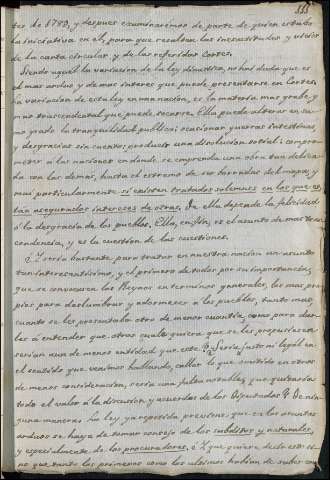 555
tes de 1789, y despues examinaremos de parte de quien estubo
la iniciativa en el, para que resalten las inexactitudes y vicios
de la carta circular y de las referidas Cortes.
Siendo aquel la variacion de la ley dinastica, no hai duda que es
el mas arduo y de mas interes que puede presentarse en Cortes.
La variacion de esta ley en una nacion, es la materia mas grave, y
mas trascendental que puede tocarse. Ella puede alterar en su-
mo grado la tranquilidad publica; ocasionar guerras intestinas,
y desgracias sin cuento; producir una disolucion social; compro-
meter á las naciones en donde se emprenda una obra tan delica-
da con las demas, hasta el extremo de ser borradas del mapa; y
mui particularmente si existen tratados solemnes en los que es-
tan asegurados intereses de otras. De ella depende la felicidad
ó la desgracia de los pueblos. Ella, en fin, es el asunto de mas tras-
cendencia, y es la cuestion de las cuestiones.
¿Y seria bastante para tratar en nuestra nacion un asunto
tan interesantisimo, y el primero de todos por su importancia,
que se convocasen los Reynos en terminos generales, los mas pro-
pios para deslumbrar y adormecer á los pueblos, tanto mas,
cuanto se les presentaba otro de menor cuantia, como para dar-
les á entender que otros cualesquiera que se les propusiesen
serian aun de menos entidad que este? ¿Seria justo ni legal en
el sentido que venimos hablando, callar lo que omitido en otros
de menos consideracion, seria una falta notable, que quitaria
todo el valor á la discusion y acuerdos de los Diputados? De nin-
guna manera. La ley ya repetida previene que en los asuntos
arduos se haya de tomar consejo de los subditos y naturales,
y especialmente de los procuradores. ¿Y que quiere decir esto si-
no que tanto los primeros como los ultimos habian de saber con